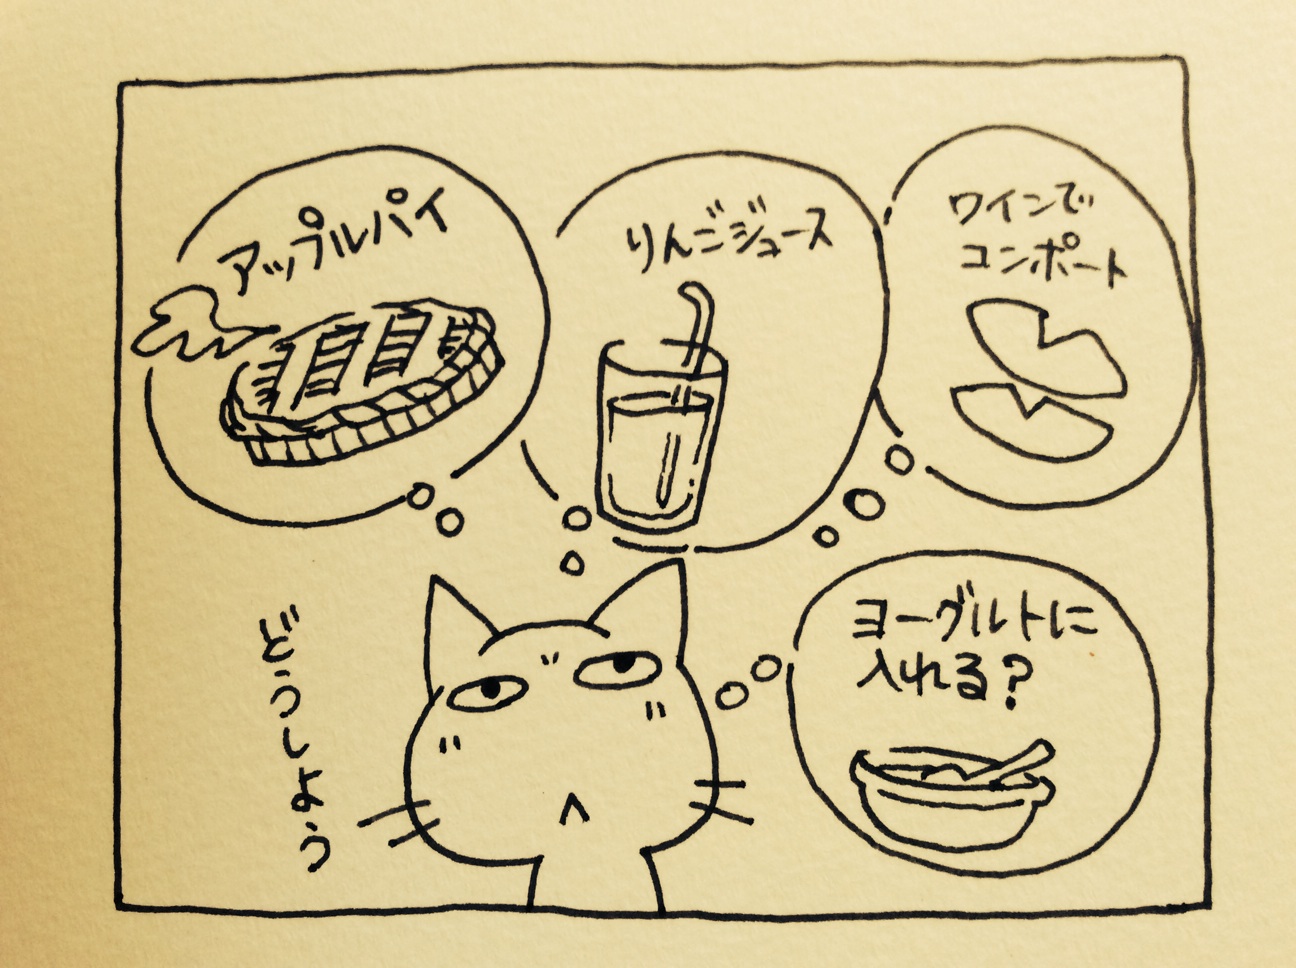 アップルパイ
りんごジュース
ワインで
コンポート
ヨーグルトに
入れる?
どうしよう